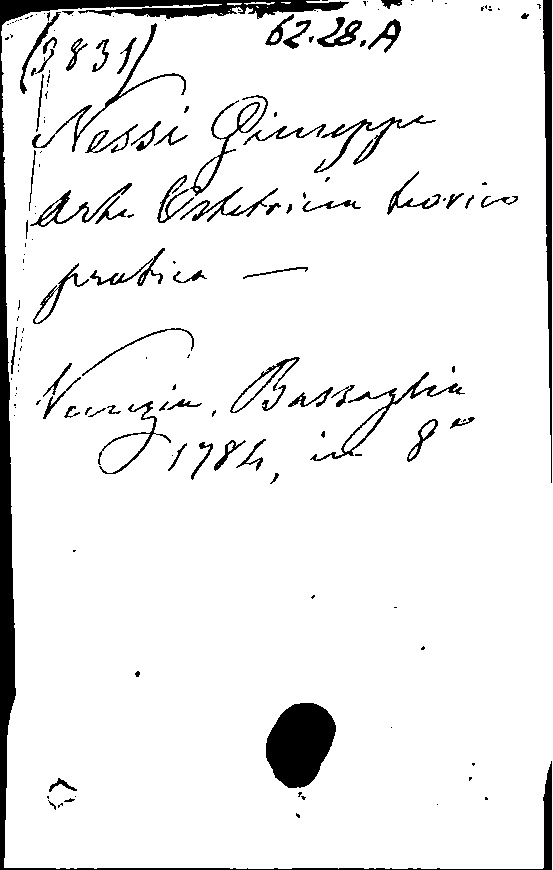 (3831) 62.28.A
Nessi Giuseppe
Arte Ostetricia teorico
pratica —
Venezia, Bassaglia
1784, in 8°